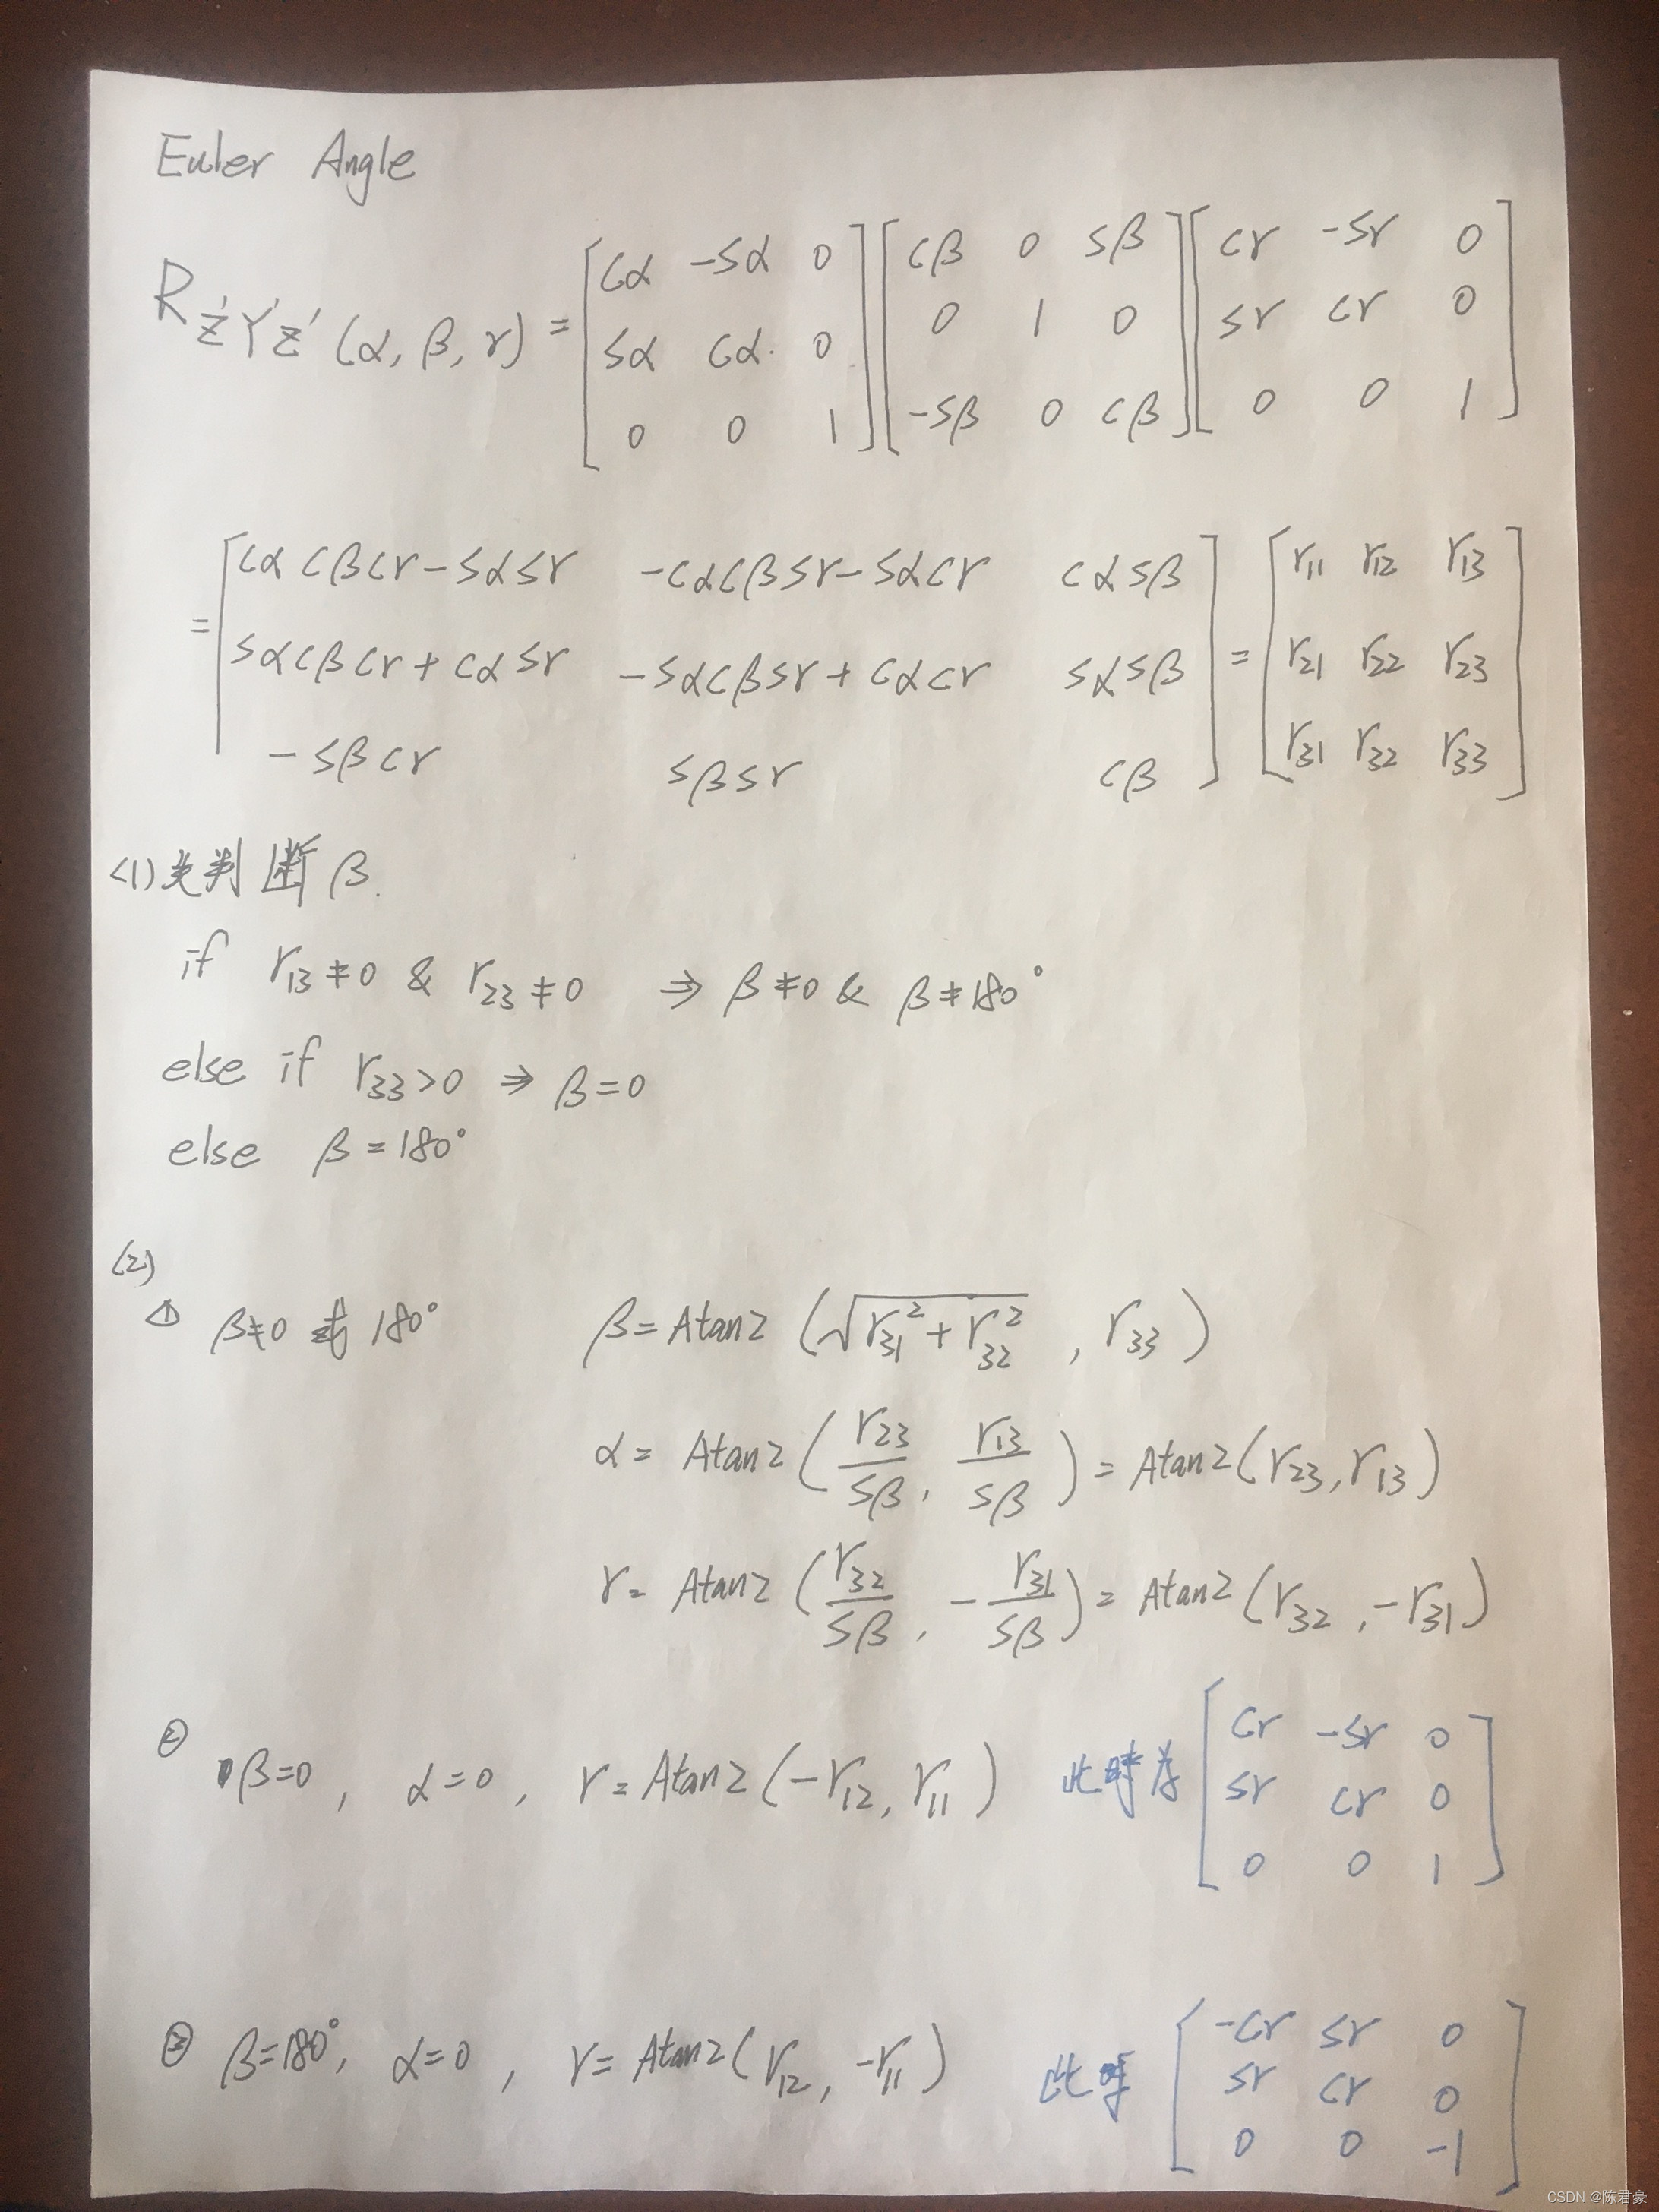 Euler Angle
R Z'Y'Z' (α, β, γ) = [cα -sα 0] [cβ 0 sβ] [cγ -sγ 0]
[sα cα 0] [0 1 0] [sγ cγ 0]
[0 0 1] [-sβ 0 cβ] [0 0 1]
= [cα cβ cγ - sα sγ -cα cβ sγ - sα cγ cα sβ] = [r11 r12 r13]
[sα cβ cγ + cα sγ -sα cβ sγ + cα cγ sα sβ] [r21 r22 r23]
[-sβ cγ sβ sγ cβ] [r31 r32 r33]
(1) 先判断 β.
if r13 ≠ 0 & r23 ≠ 0 ⇒ β ≠ 0 & β ≠ 180°
else if r33 > 0 ⇒ β = 0
else β = 180°
(2)
① β ≠ 0 或 180° β = Atan2 (√(r31² + r32²), r33)
α = Atan2 (r23/sβ, r13/sβ) = Atan2 (r23, r13)
γ = Atan2 (r32/sβ, -r31/sβ) = Atan2 (r32, -r31)
② β=0, α=0, γ = Atan2 (-r12, r11) 此时为 [cγ -sγ 0]
[sγ cγ 0]
[0 0 1]
③ β=180°, α=0, γ = Atan2 (r12, -r11) 此时 [-cγ sγ 0]
[sγ cγ 0]
[0 0 -1]
CSDN @陈君豪